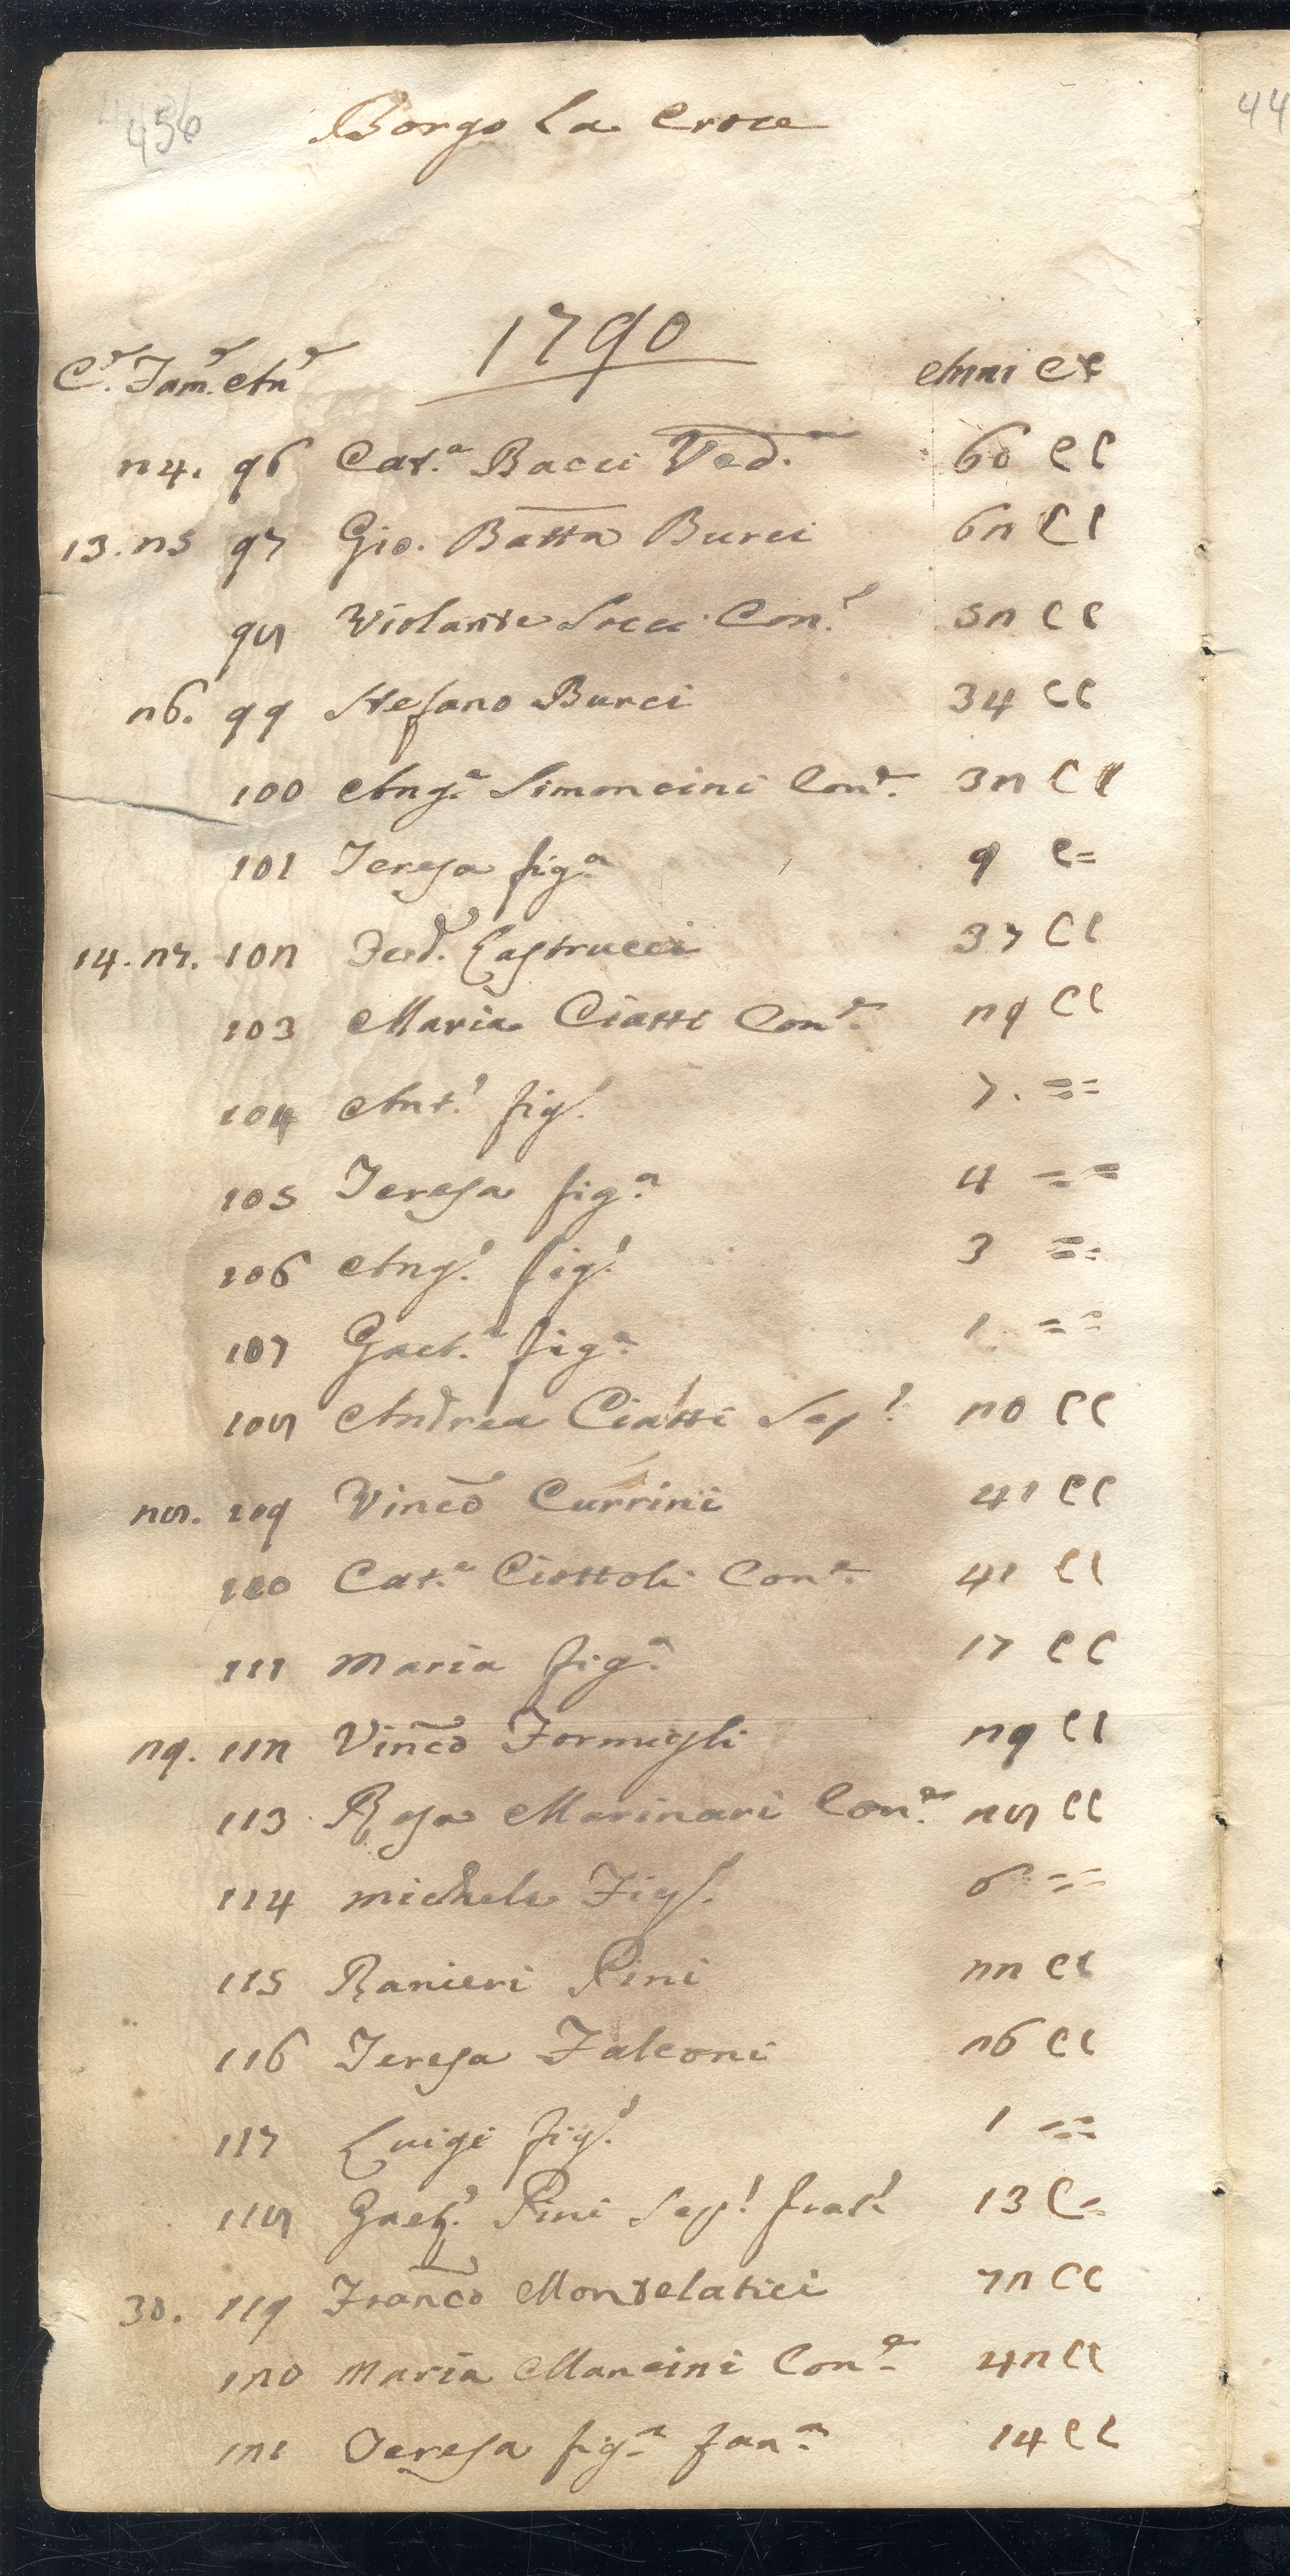 456
44
Borgo La Croce
1790
C.e Fam.e An.e Anni CC
24. 96 Cat.a Bacci Ved.a 60 CC
13. 25 97 Gio. Batta Burci 62 CC
98 Violante Socci Con.e 52 CC
26. 99 Stefano Burci 34 CC
100 Ang.a Simoncini Con.e 32 CC
101 Teresa fig.a 9 C=
14. 27. 102 Ferd.o Castrucci 37 CC
103 Maria Ciatti Con.e 29 CC
104 Ant.o fig.o 7. ==
105 Teresa fig.a 4 ==
106 Ang.o fig.o 3 ==
107 Gaet.a fig.a 1 ==
108 Andrea Ciatti Sep.o 20 CC
28. 109 Vinco Currini 41 CC
110 Cat.a Ciottoli Con.e 41 CC
111 Maria fig.a 17 CC
29. 112 Vinco Formigli 29 CC
113 Rosa Marinari Con.e 28 CC
114 Michele Fig.o 6 ==
115 Ranieri Pini 22 CC
116 Teresa Falconi 26 CC
117 Luigi fig.o 1 ==
118 Gaet.o Pini Sep.o frat.o 13 C=
30. 119 Franco Montelatici 72 CC
120 Maria Mancini Con.e 42 CC
121 Teresa fig.a fan.a 14 CC